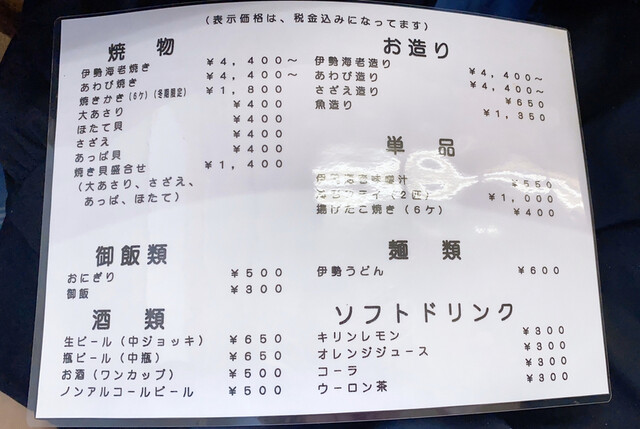 (表示価格は、税金込みになってます)
焼 物
伊勢海老焼き ¥4,400~
あわび焼き ¥4,400~
焼きかき(6ケ)(冬期限定) ¥1,800
大あさり ¥400
ほたて貝 ¥400
さざえ ¥400
あっぱ貝 ¥400
焼き貝盛合せ ¥1,400
(大あさり、さざえ、
あっぱ、ほたて)
お造り
伊勢海老造り ¥4,400~
あわび造り ¥4,400~
さざえ造り ¥650
魚造り ¥1,350
単 品
伊勢海老味噌汁 ¥550
フライ(2匹) ¥1,000
揚げたこ焼き(6ケ) ¥400
御飯類
おにぎり ¥500
御飯 ¥300
麺 類
伊勢うどん ¥600
酒 類
生ビール(中ジョッキ) ¥650
瓶ビール(中瓶) ¥650
お酒(ワンカップ) ¥500
ノンアルコールビール ¥500
ソフトドリンク
キリンレモン ¥300
オレンジジュース ¥300
コーラ ¥300
ウーロン茶 ¥300